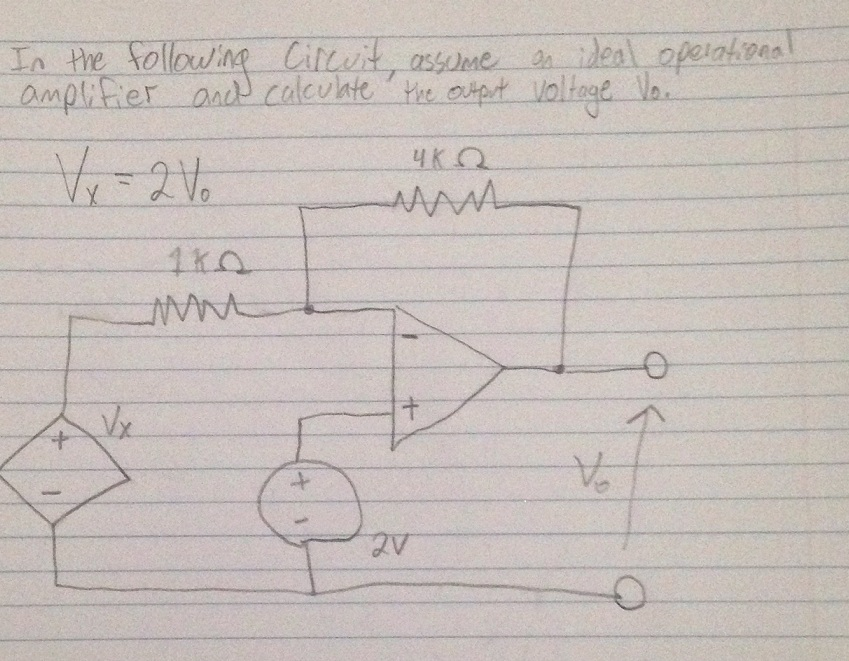 In the following Circuit, assume an ideal operational
amplifier and calculate the output voltage Vo.
Vx = 2Vo
4KΩ
1KΩ
-
+
Vx
+
-
+
-
2V
Vo